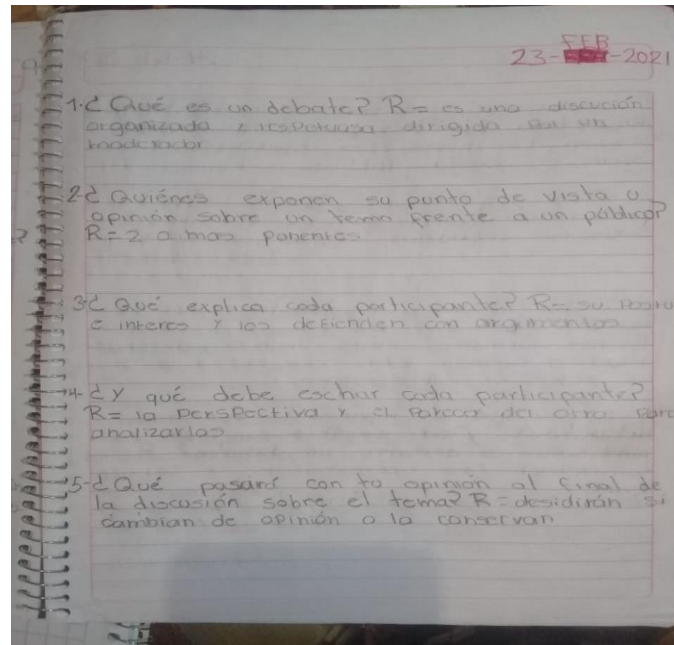 FEB
23- -2021
1.¿Qué es un debate? R= es una discución
organizada y respetuosa dirigida por un
moderador
2-¿Quiénes exponen su punto de vista u
opinión sobre un tema frente a un público?
R=2 o mas ponentes
3¿Qué explica cada participante? R= su postu
e interes y los defienden con argumentos
4-¿Y qué debe eschur cada participante?
R= la perspectiva y el parecer del otro para
analizarlas
5-¿Qué pasará con tu opinión al final de
la discusión sobre el tema? R=desidirán si
cambian de opinión o la conservan